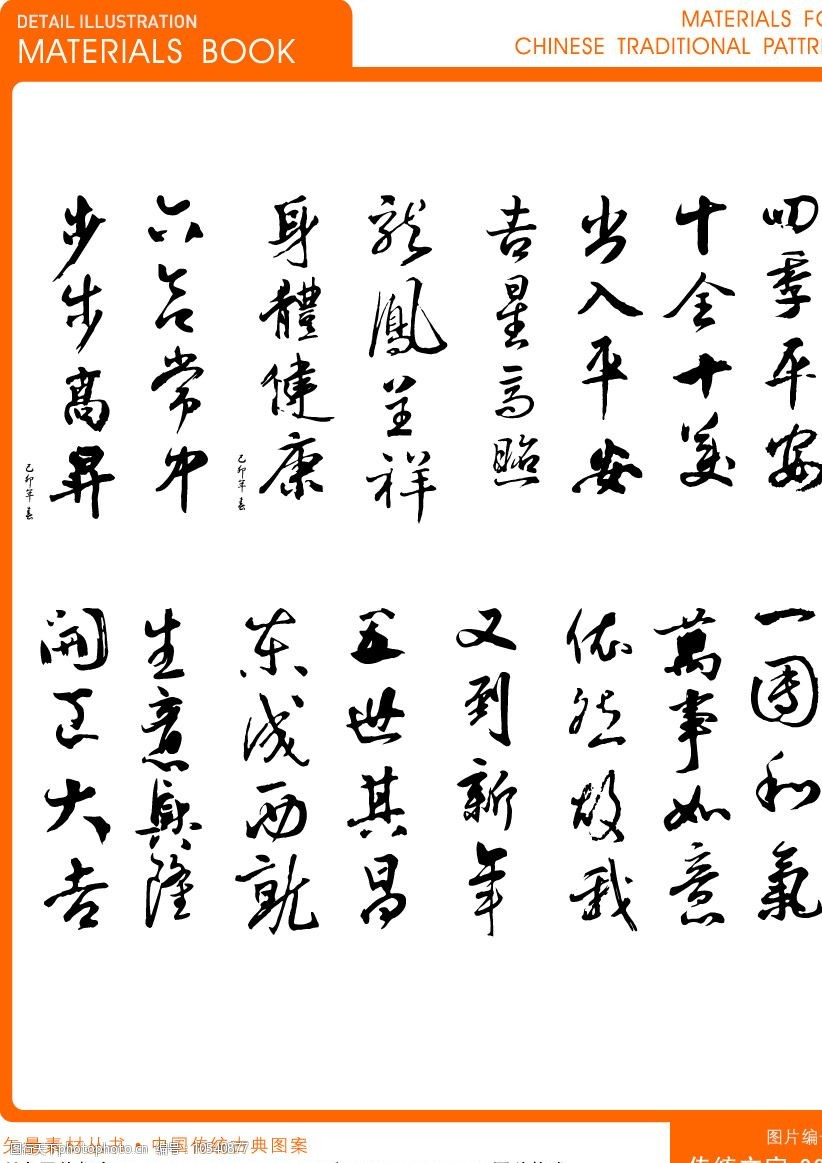 DETAIL ILLUSTRATION
MATERIALS BOOK
MATERIALS FO
CHINESE TRADITIONAL PATTR
四季平安
十全十美
出入平安
吉星高照
龍鳳呈祥
身體健康
己卯年春
六合常中
步步高昇
己卯年春
一團和氣
萬事如意
依然故我
又到新年
五世其昌
东成西就
生意興隆
開正大吉
矢量素材丛书·中国传统古典图案
图行天下photophoto.cn 编号:10540577
图片编